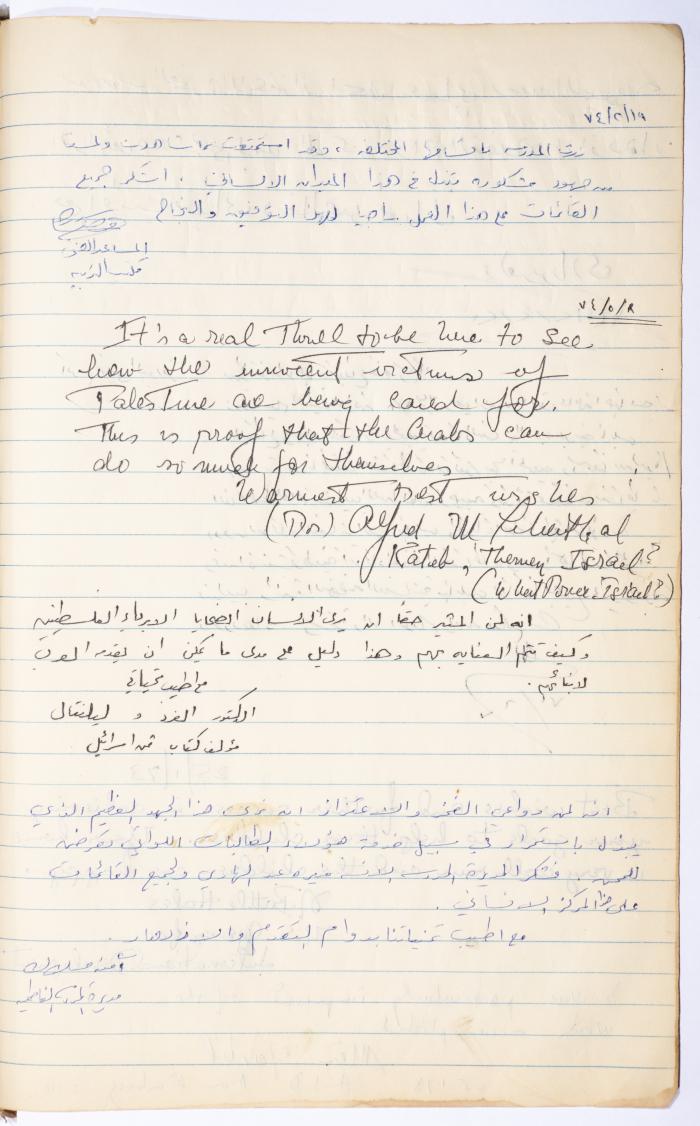 ٧٤/٢/١٩
زرت المدرسة باقسامها المختلفة ، وقد استمتعت بما شاهدت ولمست
من جهود مشكورة تبذل في هذا الميدان الانساني . اشكر جميع
القائمات على هذا العمل راجيا لهن التوفيق والنجاح
المساعد الفني
مكتب التربية
٧٤/٥/٨
It's a real Thrill to be here to see
how the innocent victims of
Palestine are being cared for.
This is proof that the Arabs can
do so much for themselves
Warmest best wishes
(Dr) Alfred M Lilienthal
Kateb, Themen Israel?
(What Price Israel?)
انه لمن المثير حقا ان يرى الانسان الضحايا الابرياء الفلسطينيه
وكيف تتم العنايه بهم وهذا دليل على مدى ما يمكن ان يقدر العرب
لابنائهم.
مع اطيب تحياتي
الدكتور الفرد و ليلنتال
مؤلف كتاب ثمن اسرائيل
انه لمن دواعي الفخر والاعتزاز ان نرى هذا الجهد العظيم الذي
يبذل باستمرار في سبيل خدمة هؤلاء الطالبات اللواتي تعرضن
للمحن . فشكرا لمديرة المدرسة الانسة منيره عبد الهادي ولجميع القائمات
على هذا المركز الانساني .
مع اطيب تمنياتنا بدوام التقدم والازدهار .
مديرة المدرسة الفاطمية